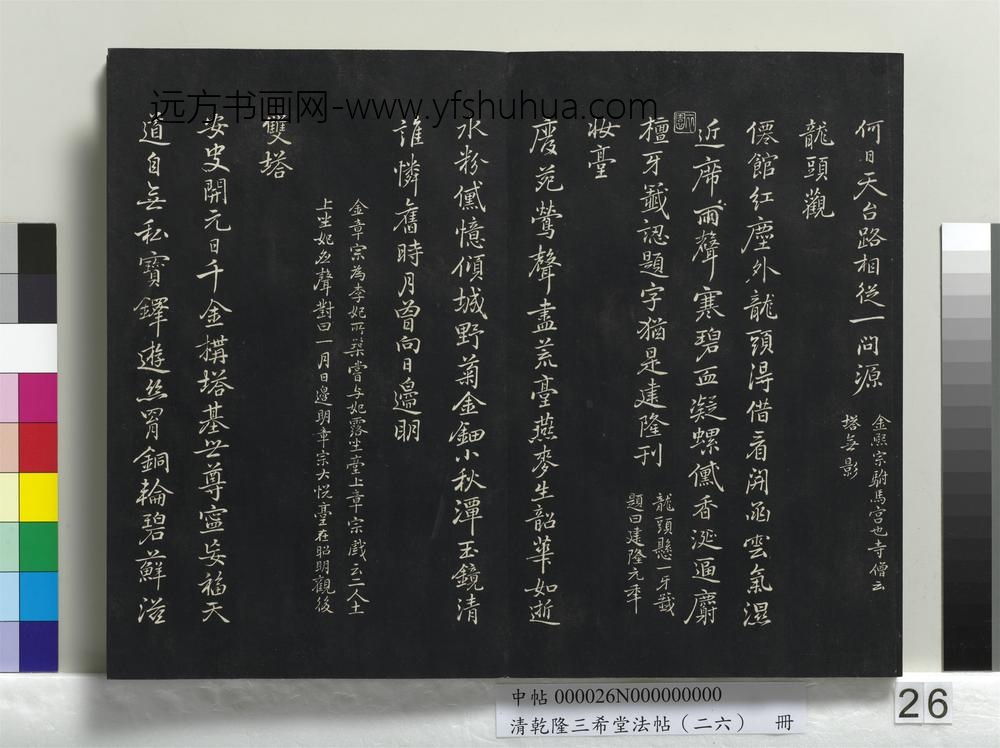 何日天台路相從一問源
金熙宗駙馬宮也寺僧云
塔無影
龍頭觀
僊館紅塵外龍頭得借看開函雲氣濕
近席雨聲寒碧血凝螺儻香涎逼麝
檀牙籤認題字猶是建隆刊
龍頭懸一牙籤
題曰建隆元年
妝臺
廢苑鶯聲盡荒臺燕麥生韶華如逝
水粉黛憶傾城野菊金鈿小秋潭玉鏡清
誰憐舊時月曾向日邊明
金章宗為李妃所築嘗与妃露坐臺上章宗戲云二人土
上坐妃應聲對曰一月日邊明章宗大悅臺在昭明觀後
雙塔
安史開元日千金構塔基世尊寧妄福天
道自無私寶鐸遊絲罥銅輪碧蘚滋
远方书画网-www.yfshuhua.com
中帖 000026N000000000
清乾隆三希堂法帖（二六） 冊
26